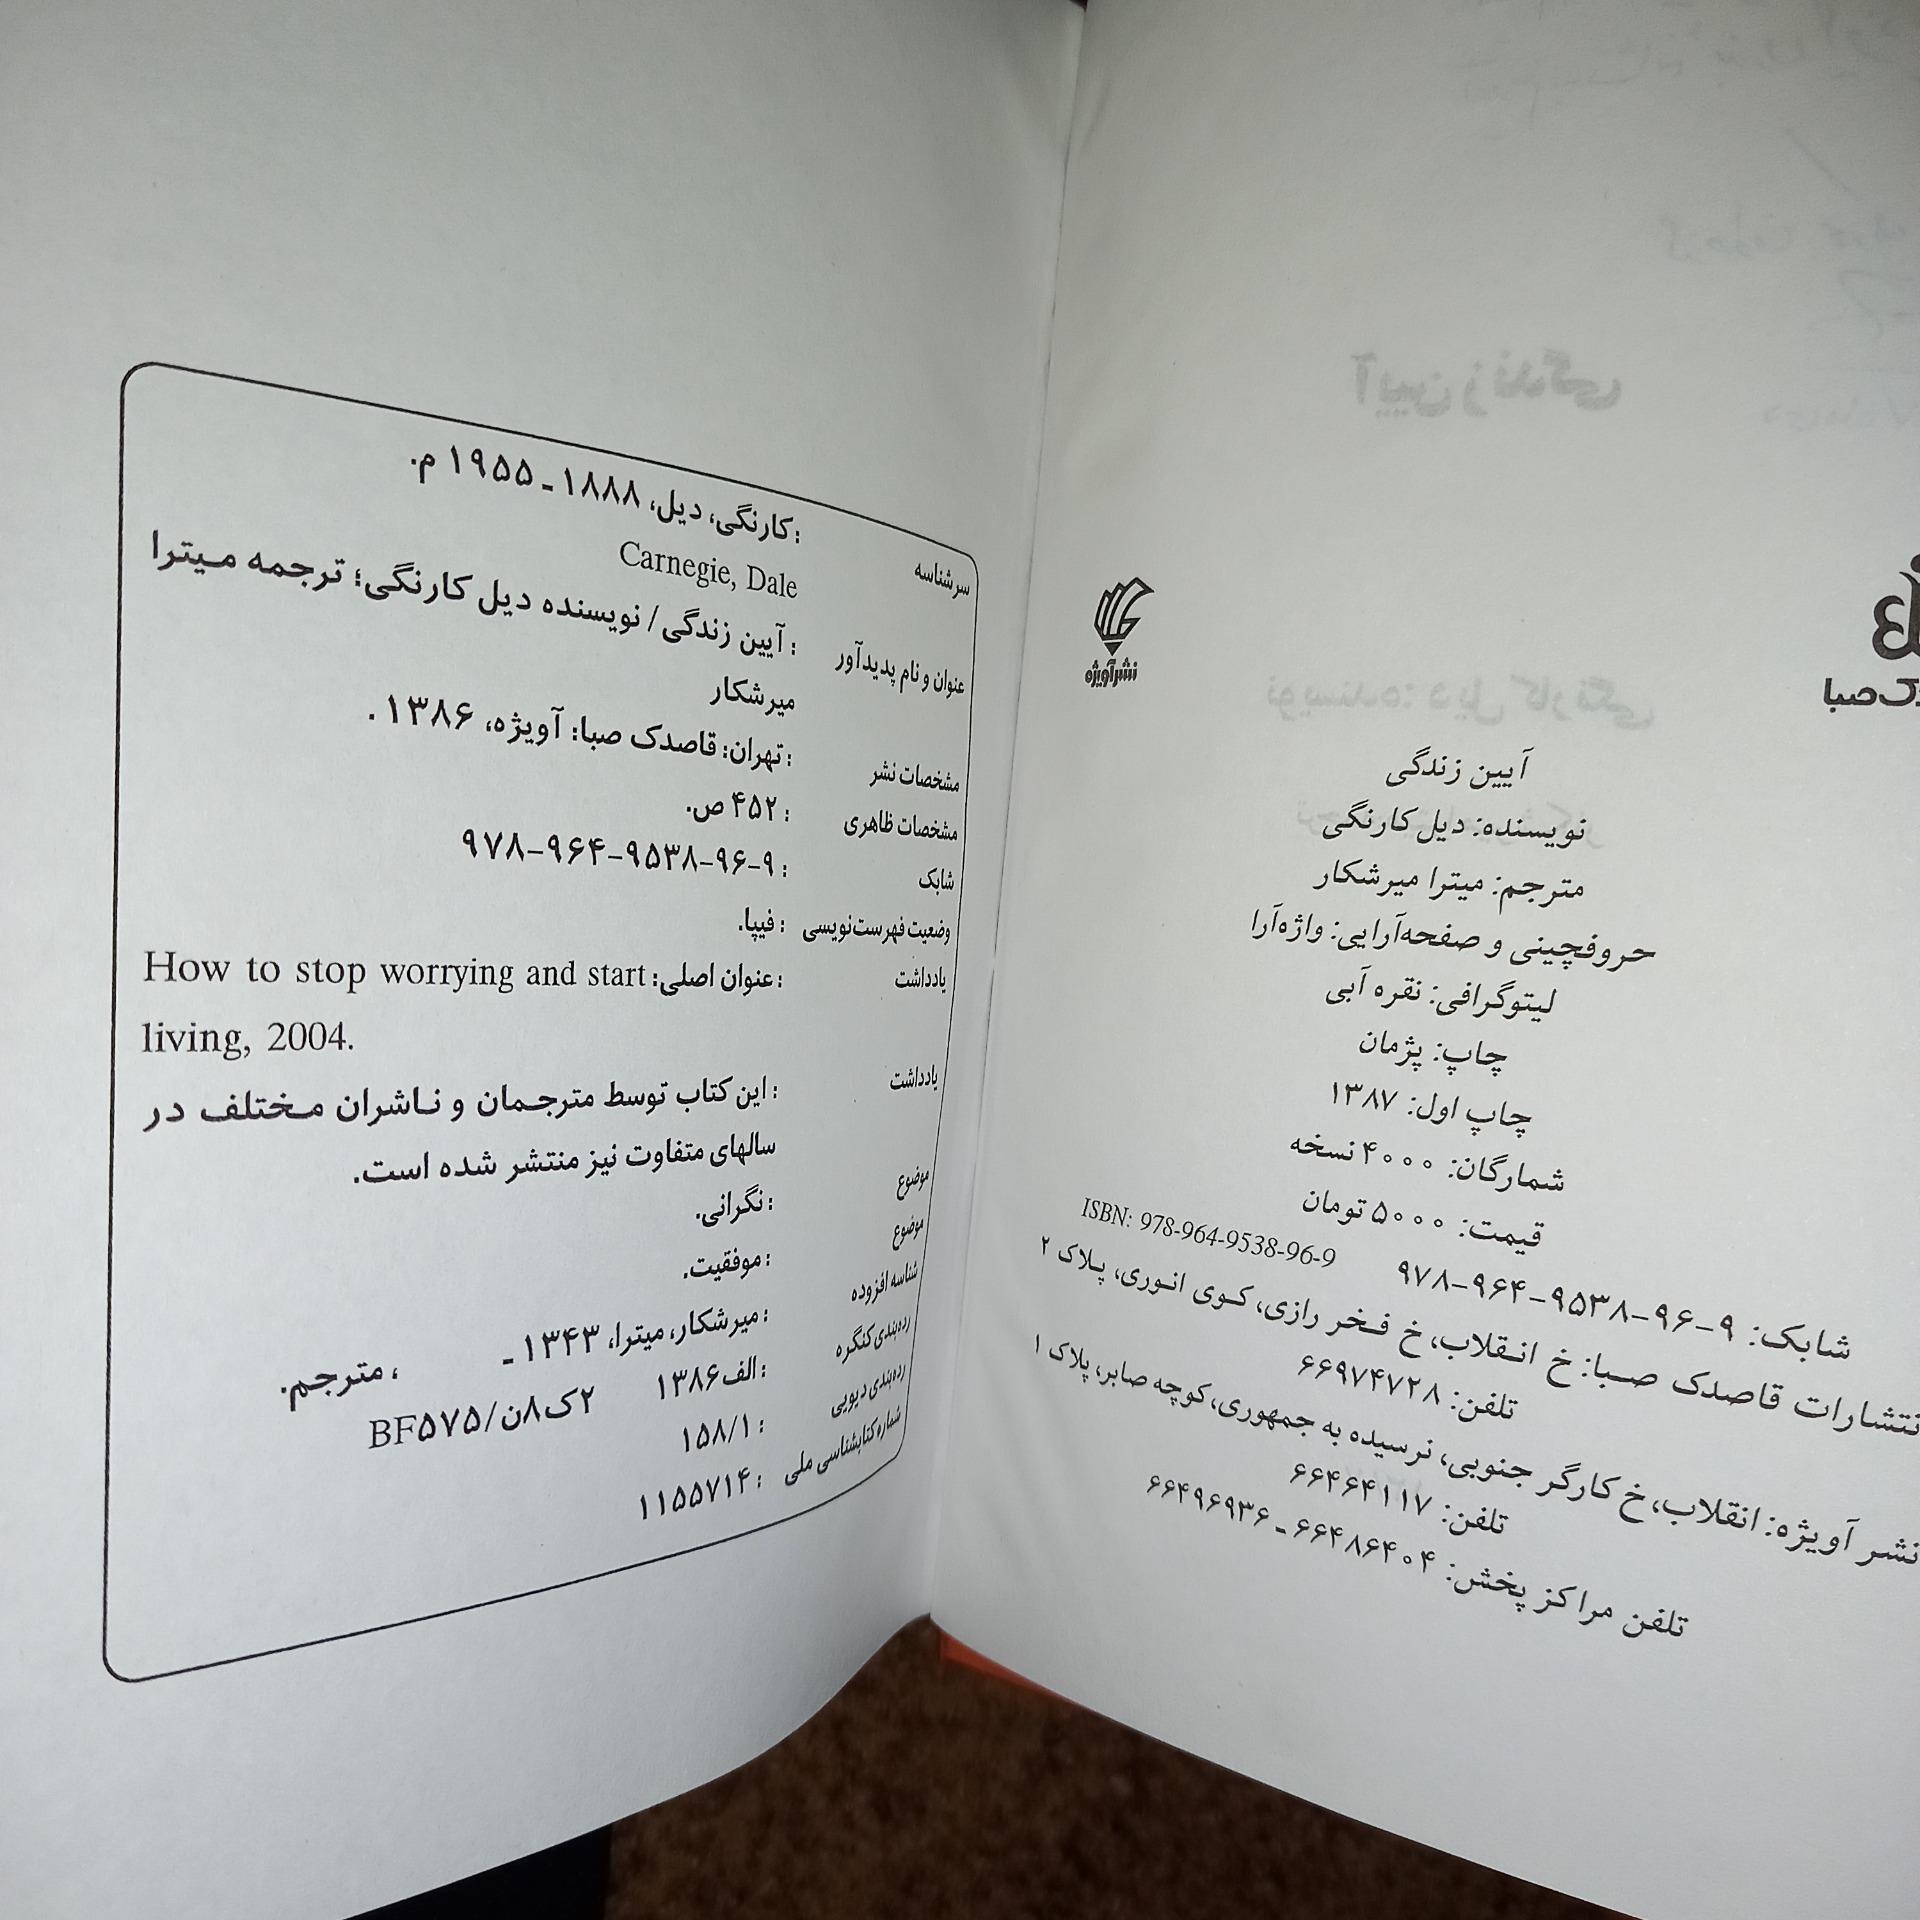 نشر آویژه
ک صبا
آیین زندگی
نویسنده: دیل کارنگی
مترجم: میترا میرشکار
حروفچینی و صفحه‌آرایی: واژه‌آرا
لیتوگرافی: نقره آبی
چاپ: پژمان
چاپ اول: ۱۳۸۷
شمارگان: ۴۰۰۰ نسخه
قیمت: ۵۰۰۰ تومان
شابک: ۹-۹۶-۹۵۳۸-۹۶۴-۹۷۸ ISBN: 978-964-9538-96-9
نتشارات قاصدک صبا: خ انقلاب، خ فخر رازی، کوی انوری، پلاک ۲
تلفن: ۶۶۹۷۴۷۲۸
نشر آویژه: انقلاب، خ کارگر جنوبی، نرسیده به جمهوری، کوچه صابر، پلاک ۱
تلفن: ۶۶۴۶۴۱۱۷
تلفن مراکز پخش: ۶۶۴۸۶۴۰۴ ـ ۶۶۴۹۶۹۳۶
سرشناسه : کارنگی، دیل، ۱۸۸۸ ـ ۱۹۵۵ م.
Carnegie, Dale
عنوان و نام پدیدآور : آیین زندگی / نویسنده دیل کارنگی؛ ترجمه میترا
میرشکار
مشخصات نشر : تهران: قاصدک صبا: آویژه، ۱۳۸۶ .
مشخصات ظاهری : ۴۵۲ ص.
شابک : ۹-۹۶-۹۵۳۸-۹۶۴-۹۷۸
وضعیت فهرست‌نویسی : فیپا.
یادداشت : عنوان اصلی: How to stop worrying and start
living, 2004.
یادداشت : این کتاب توسط مترجمان و ناشران مختلف در
سالهای متفاوت نیز منتشر شده است.
موضوع : نگرانی.
موضوع : موفقیت.
شناسه افزوده : میرشکار، میترا، ۱۳۴۳ ـ ، مترجم.
رده‌بندی کنگره : الف۱۳۸۶ ۲ک۸ن/BF۵۷۵
رده‌بندی دیویی : ۱۵۸/۱
شماره کتابشناسی ملی : ۱۱۵۵۷۱۴